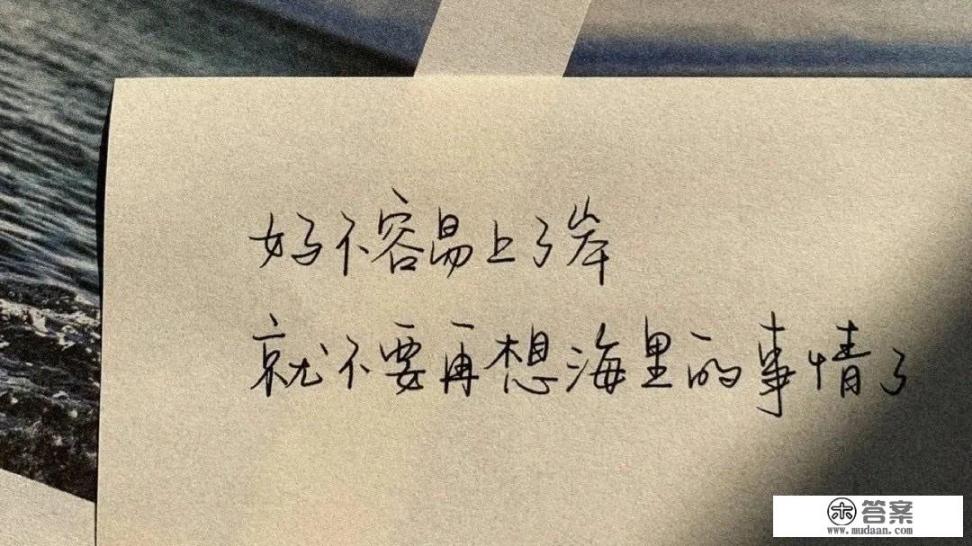 好不容易上了岸
就不要再想海里的事情了
答案
www.mudaan.com